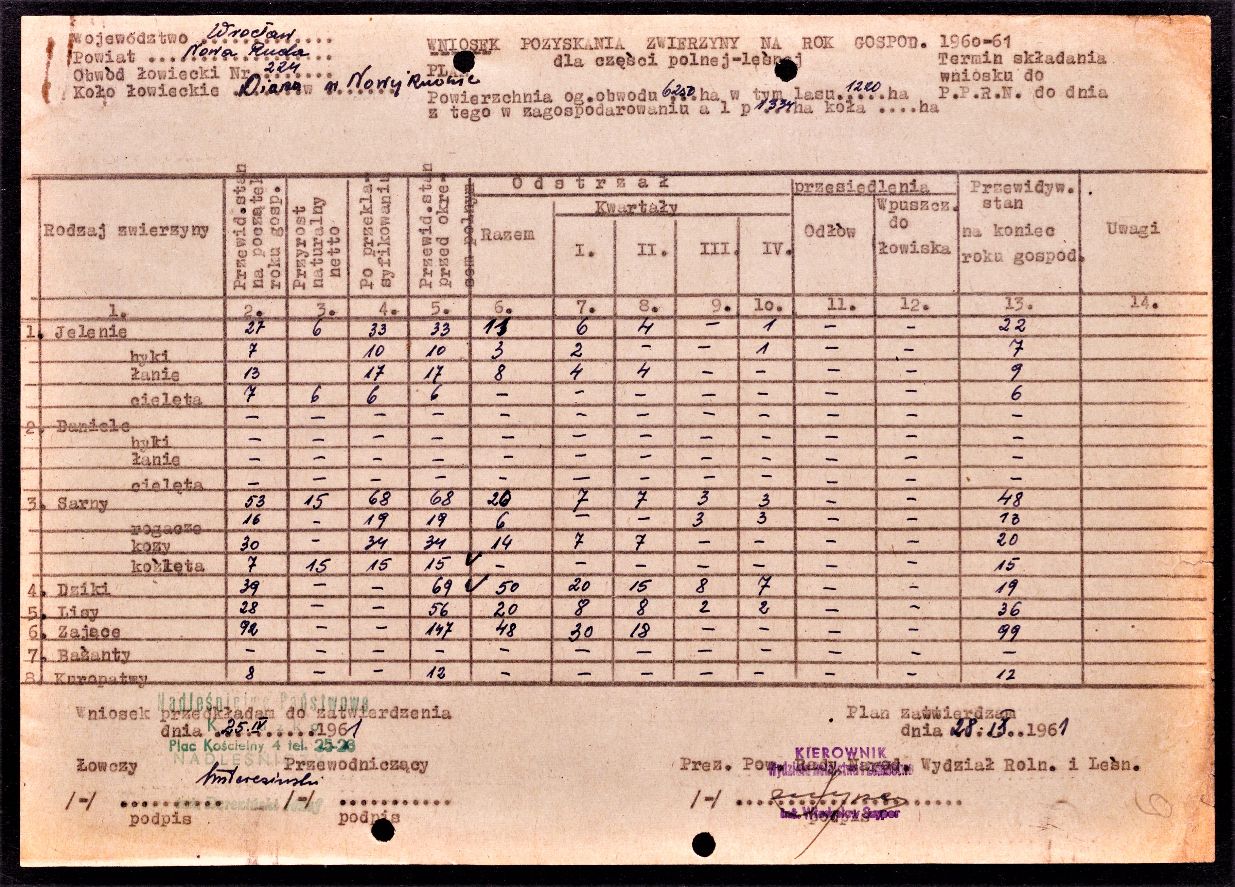 Województwo Wrocław
Powiat ... Nowa Ruda
Obwód łowiecki Nr 224
Koło łowieckie Diana w Nowej Rudzie
WNIOSEK POZYSKANIA ZWIERZYNY NA ROK GOSPOD. 1960-61
PLAN dla części polnej-leśnej
Termin składania
wniosku do
P.P.R.N. do dnia
Powierzchnia og.obwodu 6250 ha w tym lasu 1220 ha
z tego w zagospodarowaniu a l p 1334 ha koła ....ha
Rodzaj zwierzyny | Przewid.stan na początek roku gosp. | Przyrost naturalny netto | Po przeklasyfikowaniu | Przewid.stan przed okresem polnym | Odstrzał | przesiedlenia | Przewidyw. stan na koniec roku gospod. | Uwagi
Razem | Kwartały | Odłów | Wpuszcz. do łowiska
I. | II. | III. | IV.
1. | 2. | 3. | 4. | 5. | 6. | 7. | 8. | 9. | 10. | 11. | 12. | 13. | 14.
1. Jelenie | 27 | 6 | 33 | 33 | 11 | 6 | 4 | - | 1 | - | - | 22
byki | 7 | 10 | 10 | 3 | 2 | - | - | 1 | - | - | 7
łanie | 13 | 17 | 17 | 8 | 4 | 4 | - | - | - | - | 9
cielęta | 7 | 6 | 6 | 6 | - | - | - | - | - | - | - | 6
2. Daniele | - | - | - | - | - | - | - | - | - | - | - | -
byki | - | - | - | - | - | - | - | - | - | - | - | -
łanie | - | - | - | - | - | - | - | - | - | - | - | -
cielęta | - | - | - | - | - | - | - | - | - | - | - | -
3. Sarny | 53 | 15 | 68 | 68 | 20 | 7 | 7 | 3 | 3 | - | - | 48
rogacze | 16 | - | 19 | 19 | 6 | - | - | 3 | 3 | - | - | 13
kozy | 30 | - | 34 | 34 | 14 | 7 | 7 | - | - | - | - | 20
koźlęta | 7 | 15 | 15 | 15 ✓ | - | - | - | - | - | - | - | 15
4. Dziki | 39 | - | - | 69 ✓ | 50 | 20 | 15 | 8 | 7 | - | - | 19
5. Lisy | 28 | - | - | 56 | 20 | 8 | 8 | 2 | 2 | - | - | 36
6. Zające | 92 | - | - | 147 | 48 | 30 | 18 | - | - | - | - | 99
7. Bażanty | - | - | - | - | - | - | - | - | - | - | - | -
8. Kuropatwy | 8 | - | - | 12 | - | - | - | - | - | - | - | 12
Nadleśnictwo Państwowe
Wniosek przedkładam do zatwierdzenia
dnia 25.IV 1961
Plac Kościelny 4 tel. 25-28
Łowczy Przewodniczący
/-/ ........... /-/ ...........
podpis podpis
Plan zatwierdzam
dnia 28.IV.1961
KIEROWNIK
Prez. Pow. Rady Narod. Wydział Roln. i Leśn.
/-/ ......................
podpis
6